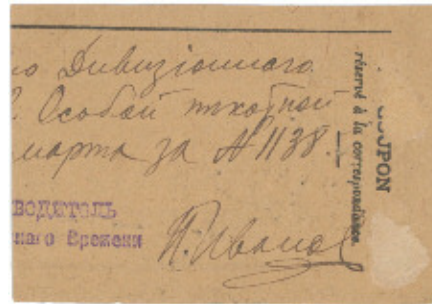 го Дивизіоннаго
2 Особой пѣхотной
марта за № 1138.
ВОДИТЕЛЬ
наго Времени
Н. Иванов
COUPON
réservé à la correspondance.